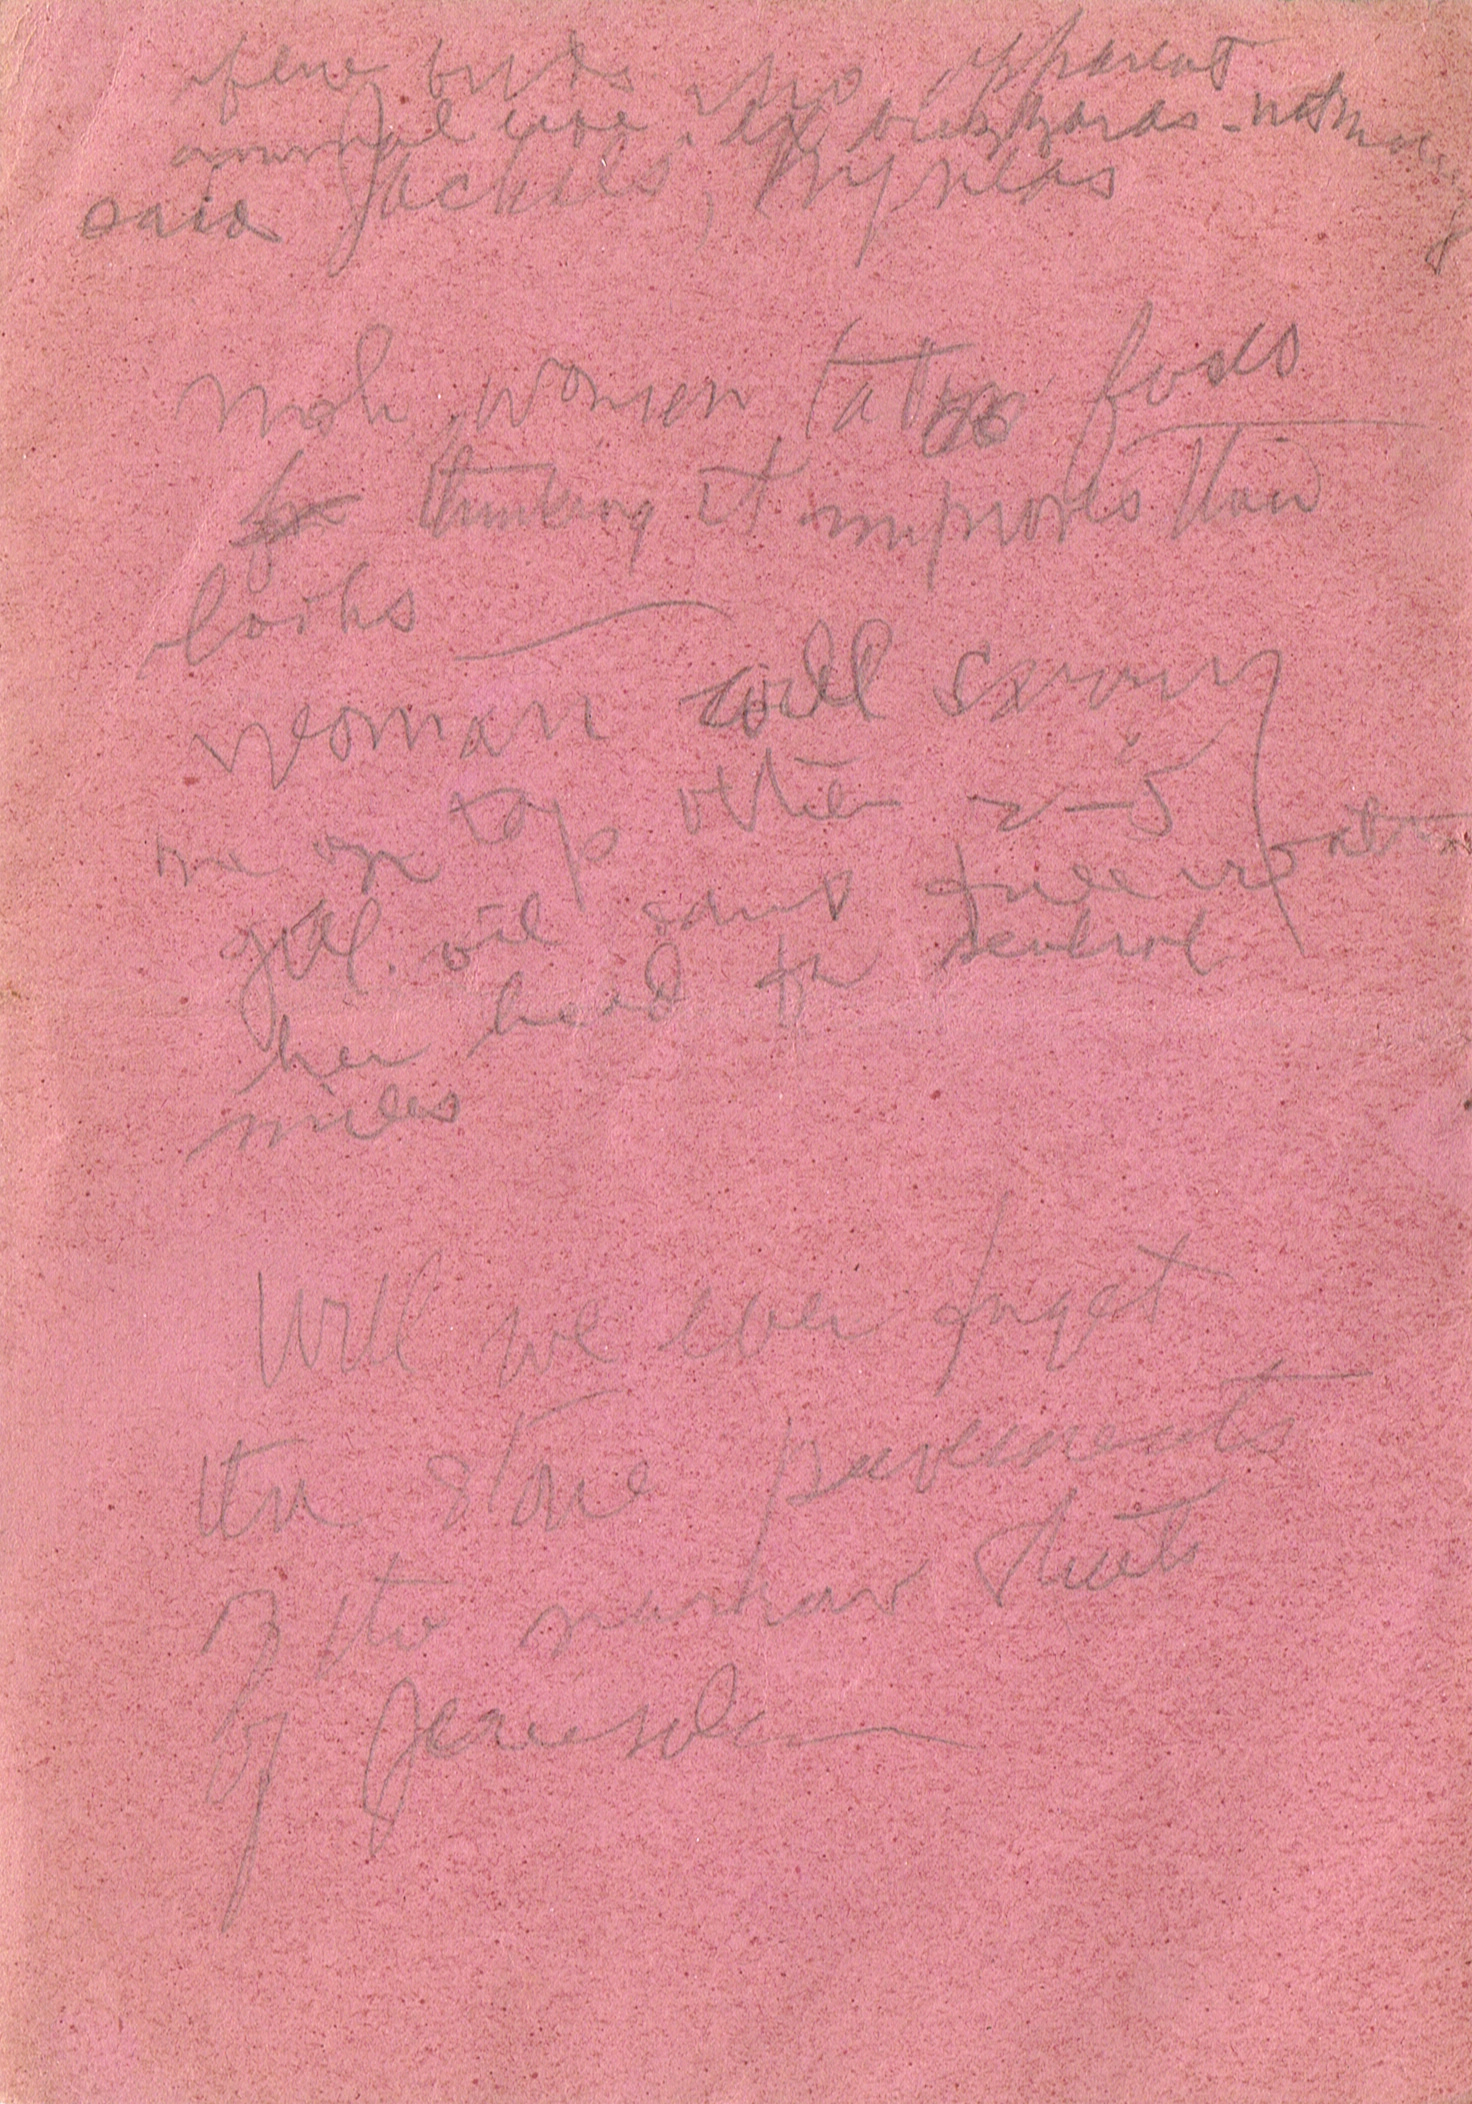 few birds no apparent
animal life. ex buzzards - nothing
said Jackals, hyneas
Moh. women tatoo
thinking it improves their
looks
woman will carry
one on top other 2-5
gal. oil full water
her head for several
miles
Will we ever forget
the stone pavements
of the narrow streets
of Jerusalem